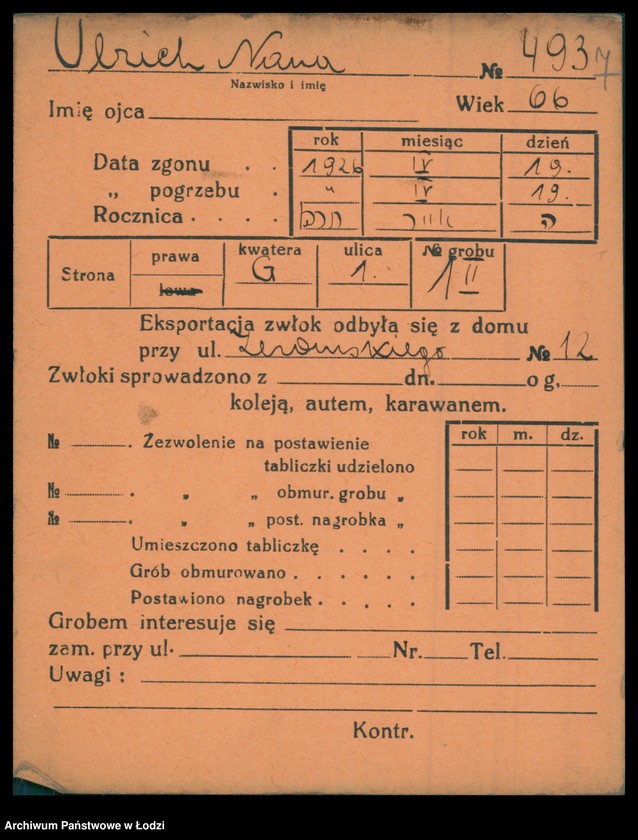 Ulrich № 4937
Nazwisko i imię
Imię ojca Wiek 66
rok miesiąc dzień
Data zgonu . . 1926 IV 19.
„ pogrzebu . " IV 19.
Rocznica . . . . תרפ אייר ה
Strona prawa lewa kwatera G ulica 1. № grobu 1 II
Eksportacja zwłok odbyła się z domu
przy ul. Żeromskiego № 12
Zwłoki sprowadzono z dn. o g.
koleją, autem, karawanem.
rok m. dz.
№ . Zezwolenie na postawienie
tabliczki udzielono
№ . „ „ obmur. grobu „
№ . „ „ post. nagrobka „
Umieszczono tabliczkę . . . .
Grób obmurowano . . . . . .
Postawiono nagrobek . . . . .
Grobem interesuje się
zam. przy ul. Nr. Tel.
Uwagi :
Kontr.
Archiwum Państwowe w Łodzi